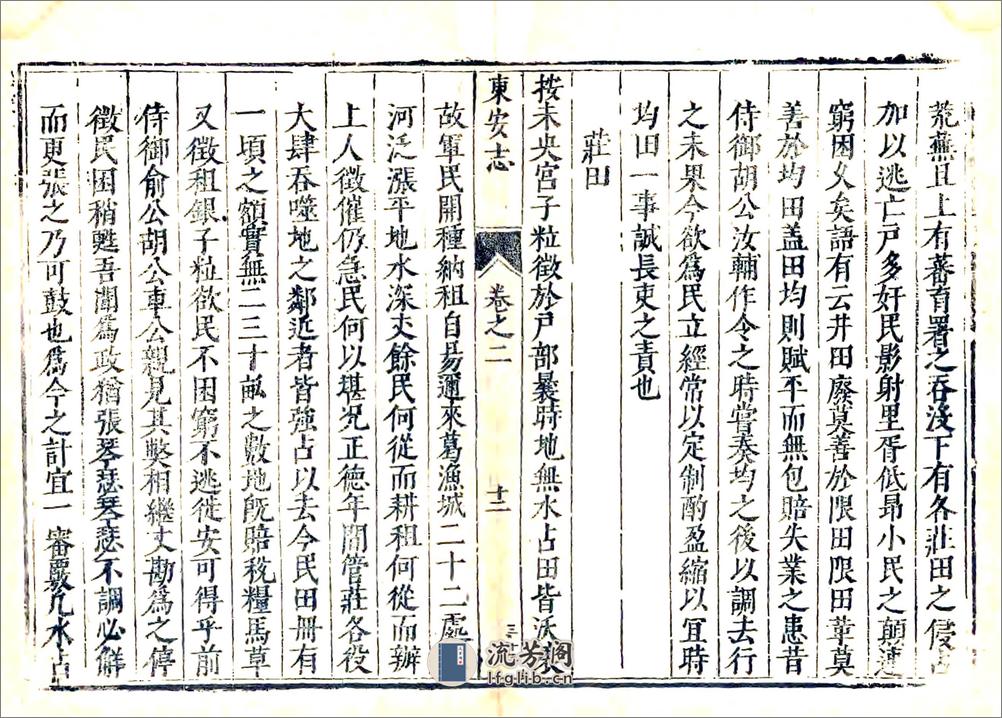 荒蕪且上有蕃育署之吞没下有各莊田之侵占
加以逃亡戸多奸民影射里胥低昂小民之顛連
窮困久矣語有云井田廢莫善於限田限田革莫
善於均田盖田均則賦平而無包賠失業之患昔
侍御胡公汝輔作令之時嘗奏均之後以調去行
之未果今欲爲民立經常以定制酌盈縮以宜時
均田一事誠長吏之責也
莊田
按未央宫子粒徵於戸部曩時地無水占田皆沃
東安志
卷之二
十二
故軍民開種納租自易邇來葛漁城二十二處
河泛漲平地水深丈餘民何從而耕租何從而辦
上人徵催仍急民何以堪况正德年間管莊各役
大肆吞噬地之鄰近者皆強占以去今民田冊有
一頃之額實無二三十畝之數地旣賠稅糧馬草
又徵租銀子粒欲民不困窮不逃徙安可得乎前
侍御俞公胡公車公親見其獘相繼丈勘爲之停
徵民困稍甦吾聞爲政猶張琴瑟琴瑟不調必解
而更張之乃可鼓也爲今之計宜一審覈凡水占
流芳阁
lfglib.cn